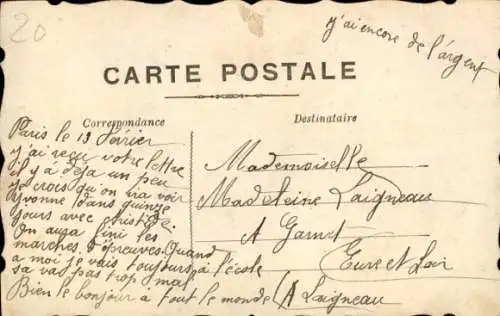 20
j'ai encore de l'argent
CARTE POSTALE
Correspondance
Destinataire
Paris le 13 Février
j'ai reçu votre lettre
il y a deja un peu
je crois qu'on ira voir
Yvonne dans quinze
jours avec Aristide.
On aura fini les
marches d'épreuves. Quand
a moi je vais toujours à l'école
sa va pas trop mal
Bien le bonjour a tout le monde
A Laigneau
Mademoiselle
Madeleine Laigneau
A Garnet
Eure et Loir